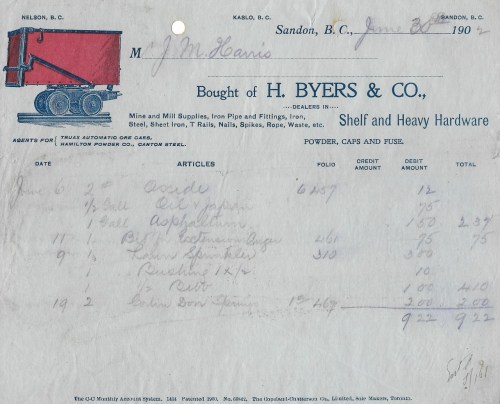 NELSON, B. C. KASLO, B. C. SANDON, B. C.
Sandon, B. C., June 30th 1902
M J. M. Harris
Bought of H. BYERS & CO.,
DEALERS IN
Mine and Mill Supplies, Iron Pipe and Fittings, Iron,
Steel, Sheet Iron, T Rails, Nails, Spikes, Rope, Waste, etc.
Shelf and Heavy Hardware
AGENTS FOR { TRUAX AUTOMATIC ORE CARS, HAMILTON POWDER CO., CANTON STEEL.
POWDER, CAPS AND FUSE.
DATE ARTICLES FOLIO CREDIT AMOUNT DEBIT AMOUNT TOTAL
June 6 2 Oxide 6457 12
1/2 Gall Oil Japan 75
1 Gall Asphaltum 1 50 2 37
11 1 Bit Extension Auger 461 75 75
9 1 Lawn Sprinkler 310 3 00
1 Bushing 1 x 1/2 10
1 1/2 Bibb 1 00 4 10
19 2 Door Springs 467 2 00 2 00
9 22 9 22
The C-C Monthly Account System. Patented 1900. The Copeland-Chatterson Co., Limited, Sole Makers, Toronto.